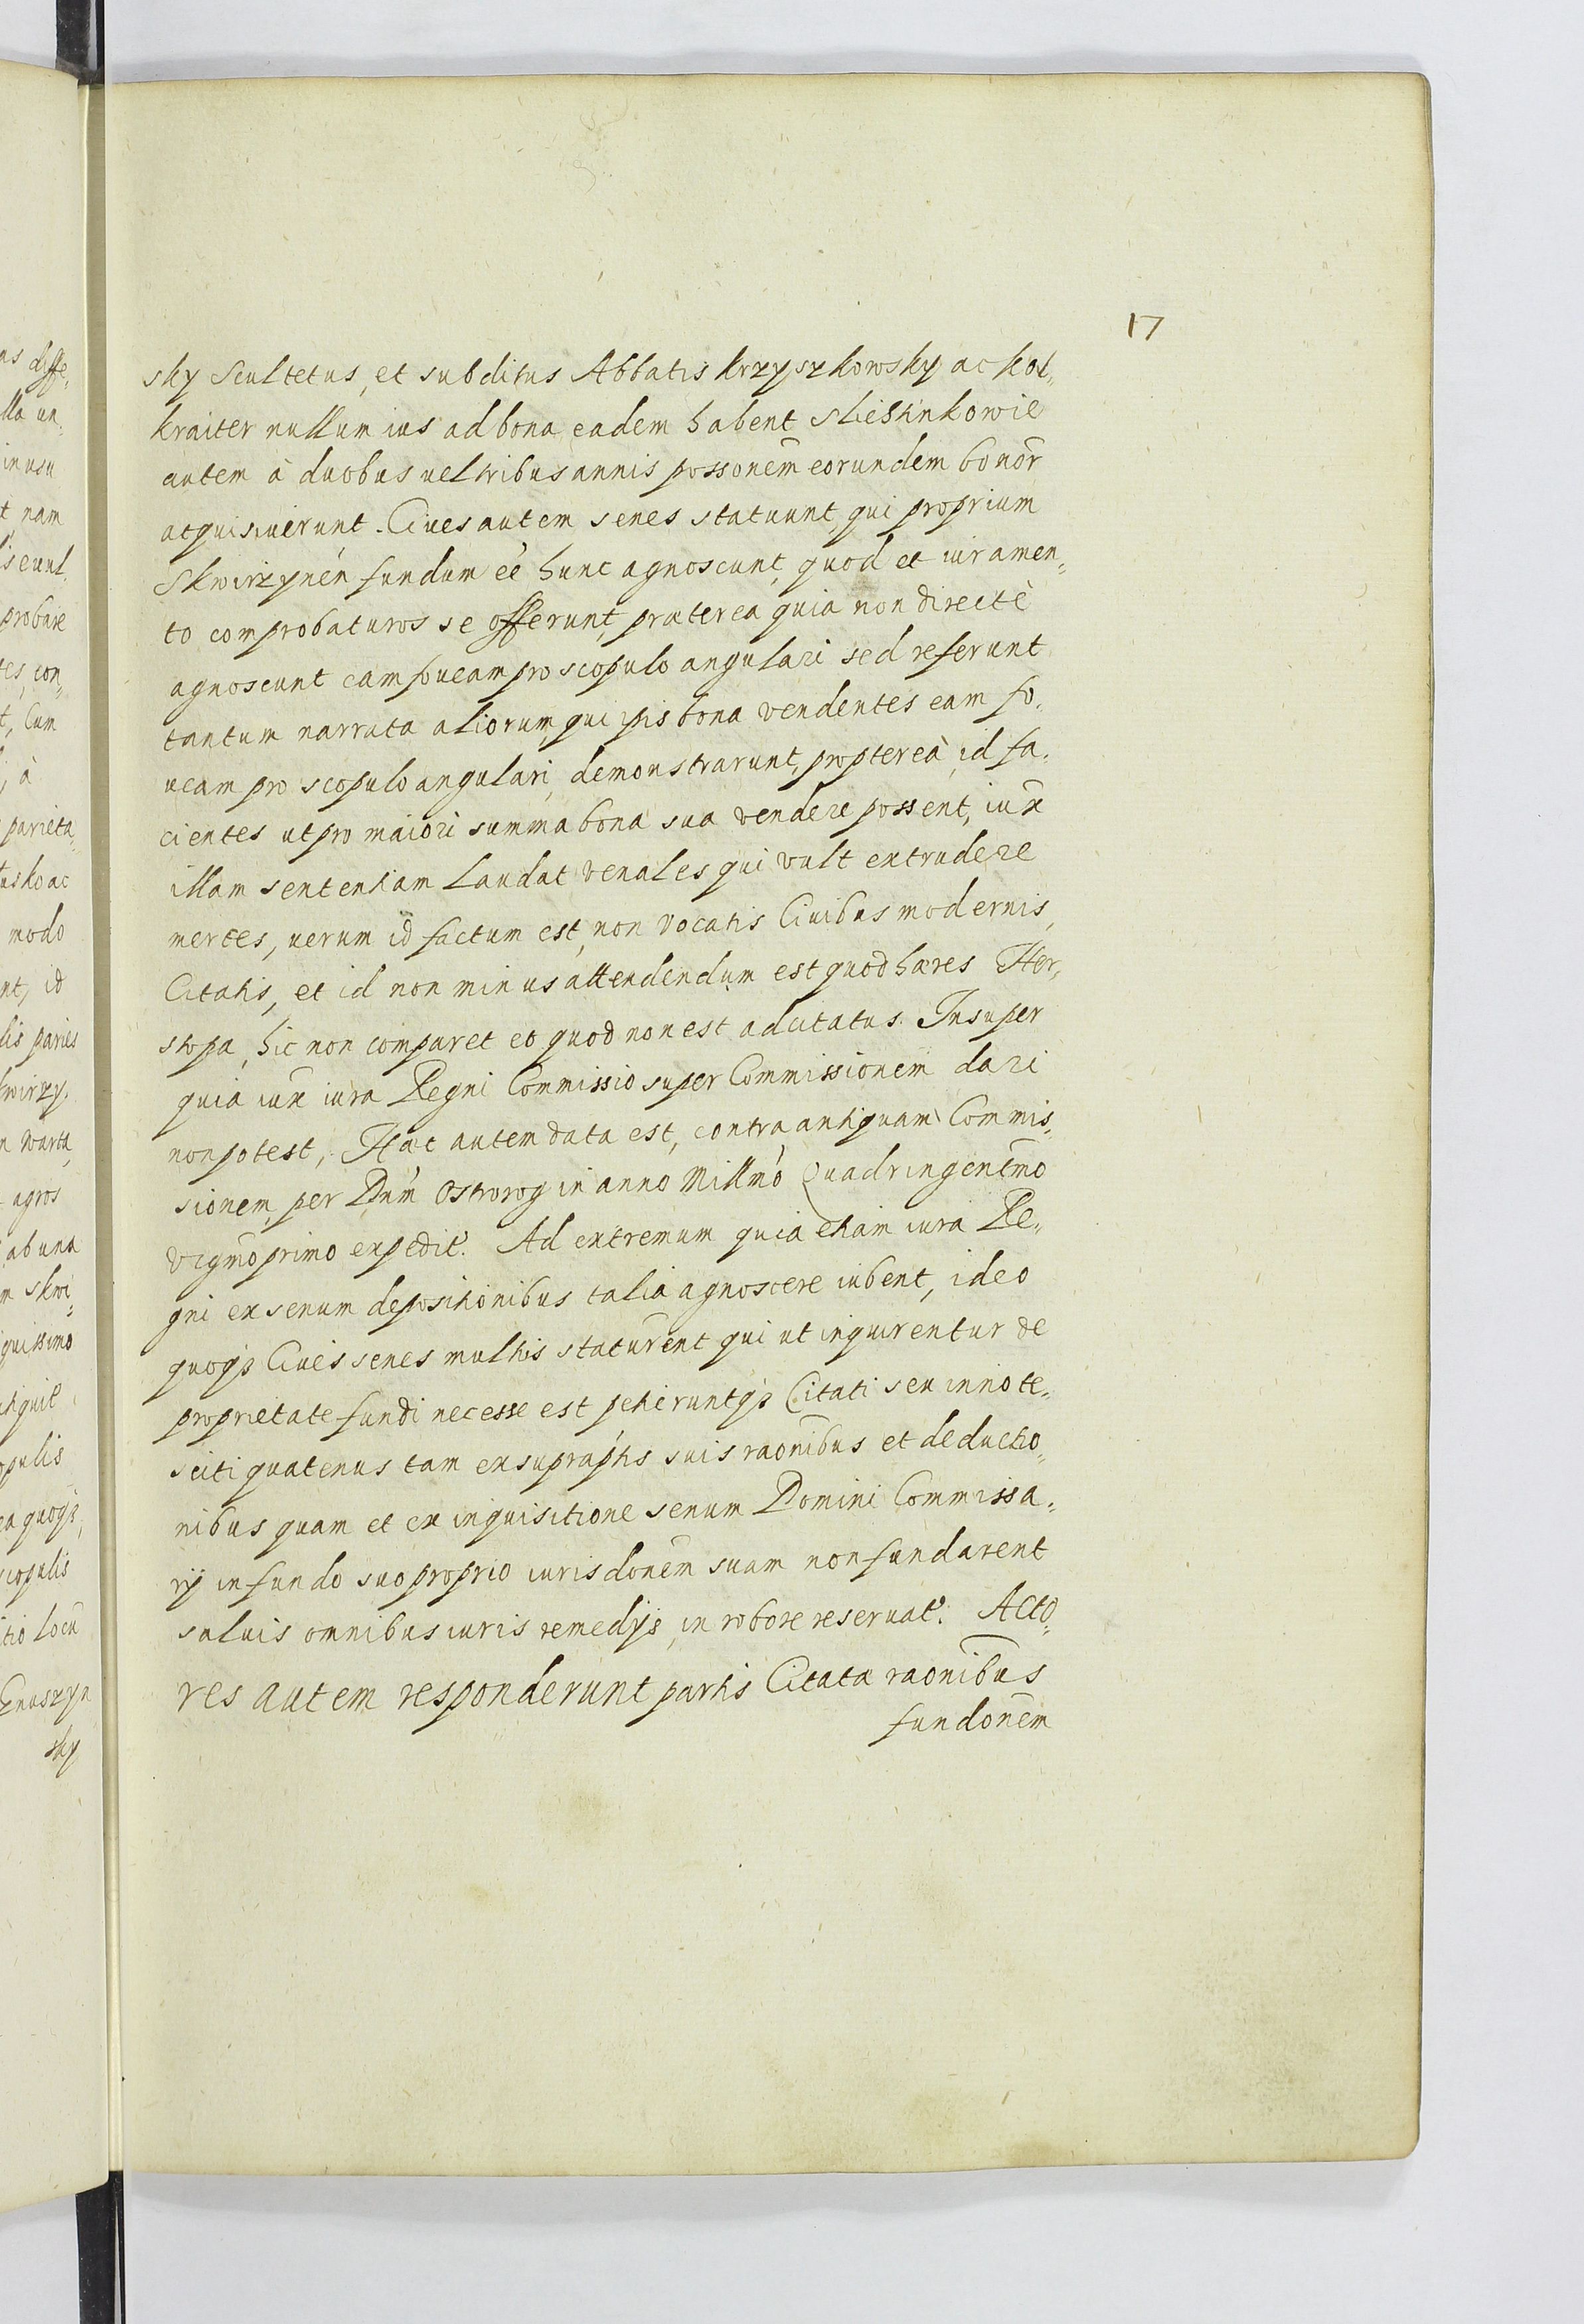 17
sky Scultetus, et subditus Abbatis Krzyszkowsky ac Kol„
kraiter nullum ius ad bona eadem habent Skieshinkowie
autem à duobus uel tribus annis possonem̄ eorundem bonor̄
acquisiuerunt. Ciues autem senes statuunt, qui proprium
Skwirzynen̄ fundum eē hunc agnoscunt, quod et iuramen„
to comprobaturos se offerunt, præterea quia non directè
agnoscunt eam foueam pro scopulo angulari sed referunt
tantum narrata aliorum, qui ipis bona vendentes eam fo„
ueam pro scopulo angulari, demonstrarunt, proptereà id fa„
cientes ut pro maiori summa bona sua vendere possent, iux̄
illam sententiam Laudat venales qui vult extrudere
merces, uerum id factum est, non vocatis Ciuibus modernis,
Citatis, et id non minus attendendum est quod hæres Her„
stopa, hic non comparet et quod non est adcitatus. Insuper
quia iux̄ iura Regni Commissio super Commissionem dari
non potest, Hæc autem data est, contra antiquam Commis„
sionem, per Dnm̄ Ostrorog in anno Millmo Quadringentmo
vigmo primo expedit. Ad extremum quia etiam iura Re„
gni ex senum depositionibus talia agnoscere iubent, ideo
quoqȝ Ciues senes multos staturent qui ut inquirentur de
proprietate fundi necesse est petieruntqȝ Citati seu innote„
sciti quatenus tam ex supraptis suis raonibus et deductio„
nibus quam et ex inquisitione senum Domini Commissa„
rij in fundo suo proprio iurisdonem̄ suam non fundarent
saluis omnibus iuris remedijs, in robore reseruat. Acto„
res autem responderunt partis Citatæ raonibus
fundonem̄